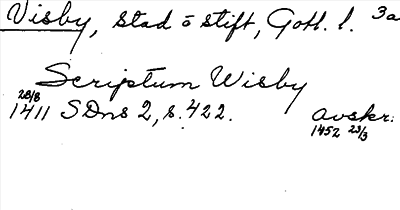 Visby, stad o stift, Gotl. l. 3a
Scriptum Wisby
28/8
1411 SDns 2, s. 422. avskr.
1452 23/3